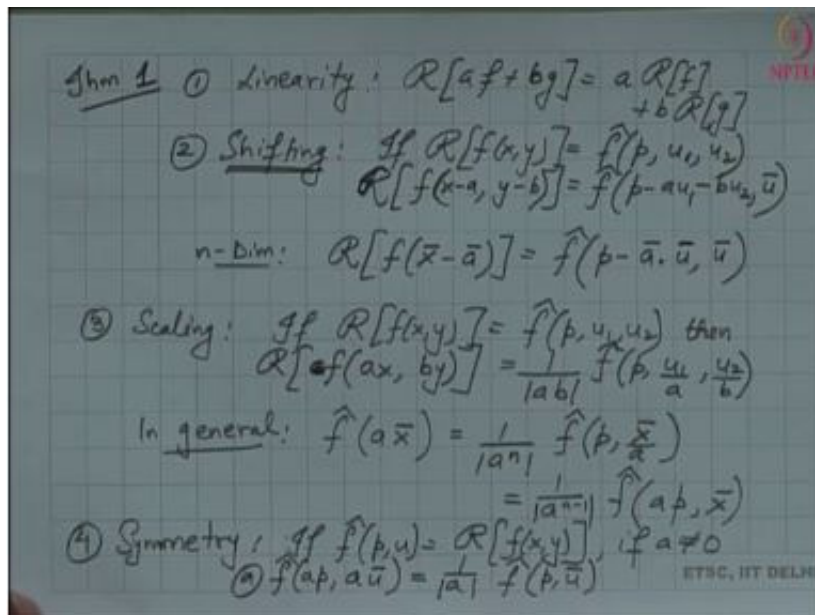 Thm 1 ① Linearity: R[af + bg] = a R[f]
+ b R[g]
② Shifting: If R[f(x,y)] = f̂(p, u₁, u₂)
R[f(x-a, y-b)] = f̂(p - au₁ - bu₂, ū)
n-Dim: R[f(x̄ - ā)] = f̂(p - ā. ū, ū)
③ Scaling: If R[f(x,y)] = f̂(p, u₁, u₂) then
R[f(ax, by)] = 1/|ab| f̂(p, u₁/a, u₂/b)
In general: f̂(a x̄) = 1/|aⁿ| f̂(p, x̄/a)
= 1/|aⁿ⁻¹| f̂(ap, x̄)
④ Symmetry: If f̂(p,u) = R[f(x,y)], if a ≠ 0
ⓐ f̂(ap, aū) = 1/|a| f̂(p, ū)
NPTEL
ETSC, IIT DELHI